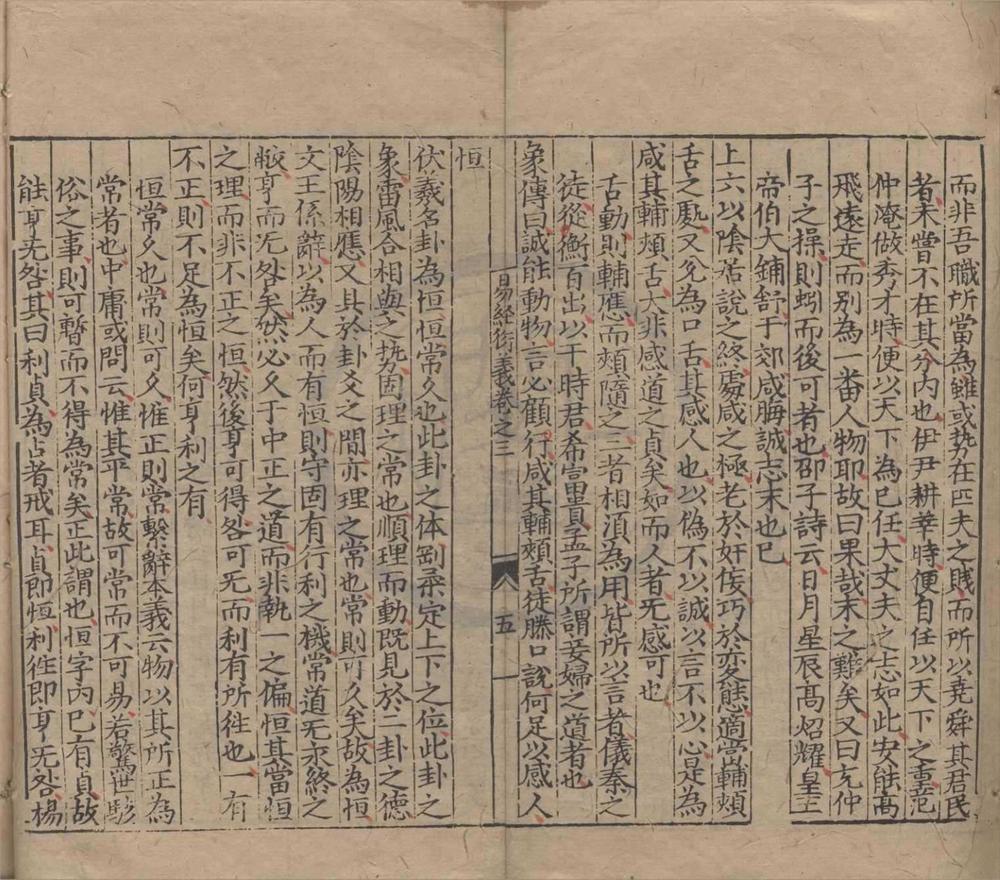 而非吾職所當為雖或势在匹夫之賤而所以堯舜其君民
者未嘗不在其分内也伊尹耕莘時便自任以天下之重范
仲淹做秀才時便以天下為已任大丈夫之志如此安能髙
飛遠走而别為一畨人物耶故曰果哉末之難矣又曰充仲
子之操則蚓而後可者也邵子詩云日月星辰髙炤耀皇王
帝伯大鋪舒于郊咸脢誠志末也已
上六以陰居說之終䖏咸之極老於奸佞巧於变態適當輔頰
舌之䖏又兊為口舌其感人也以偽不以誠以言不以心是為
咸其輔頰舌大非感道之貞矣如而人者旡感可也
舌動則輔應而頰隨之三者相湏為用皆所以言者儀秦之
徒從衡百出以干時君希富貴孟子所謂妾婦之道者也
象傳曰誠能動物言必顧行咸其輔頰舌徒滕口說何足以感人
易經衍義卷之三
五
恒
伏羲名卦為恒恒常久也此卦之体剛柔定上下之位此卦之
象雷風合相與之势固理之常也順理而動既見於二卦之德
陰陽相應又具於卦爻之間亦理之常也常則可久矣故為恒
文王係辭以為人而有恒則守固有行利之機常道旡永終之
敝亨而旡咎矣然必久于中正之道而非執一之偏恒其當恒
之理而非不正之恒然後亨可得咎可旡而利有所往也一有
不正則不足為恒矣何亨利之有
恒常久也常則可久惟正則常繫辭本義云物以其所正為
常者也中庸或問云惟其平常故可常而不可易若驚世駭
俗之事則可暫而不得為常矣正此謂也恒字内已有貞故
能亨旡咎其曰利貞為占者戒耳貞即恒利徃即亨旡咎楊